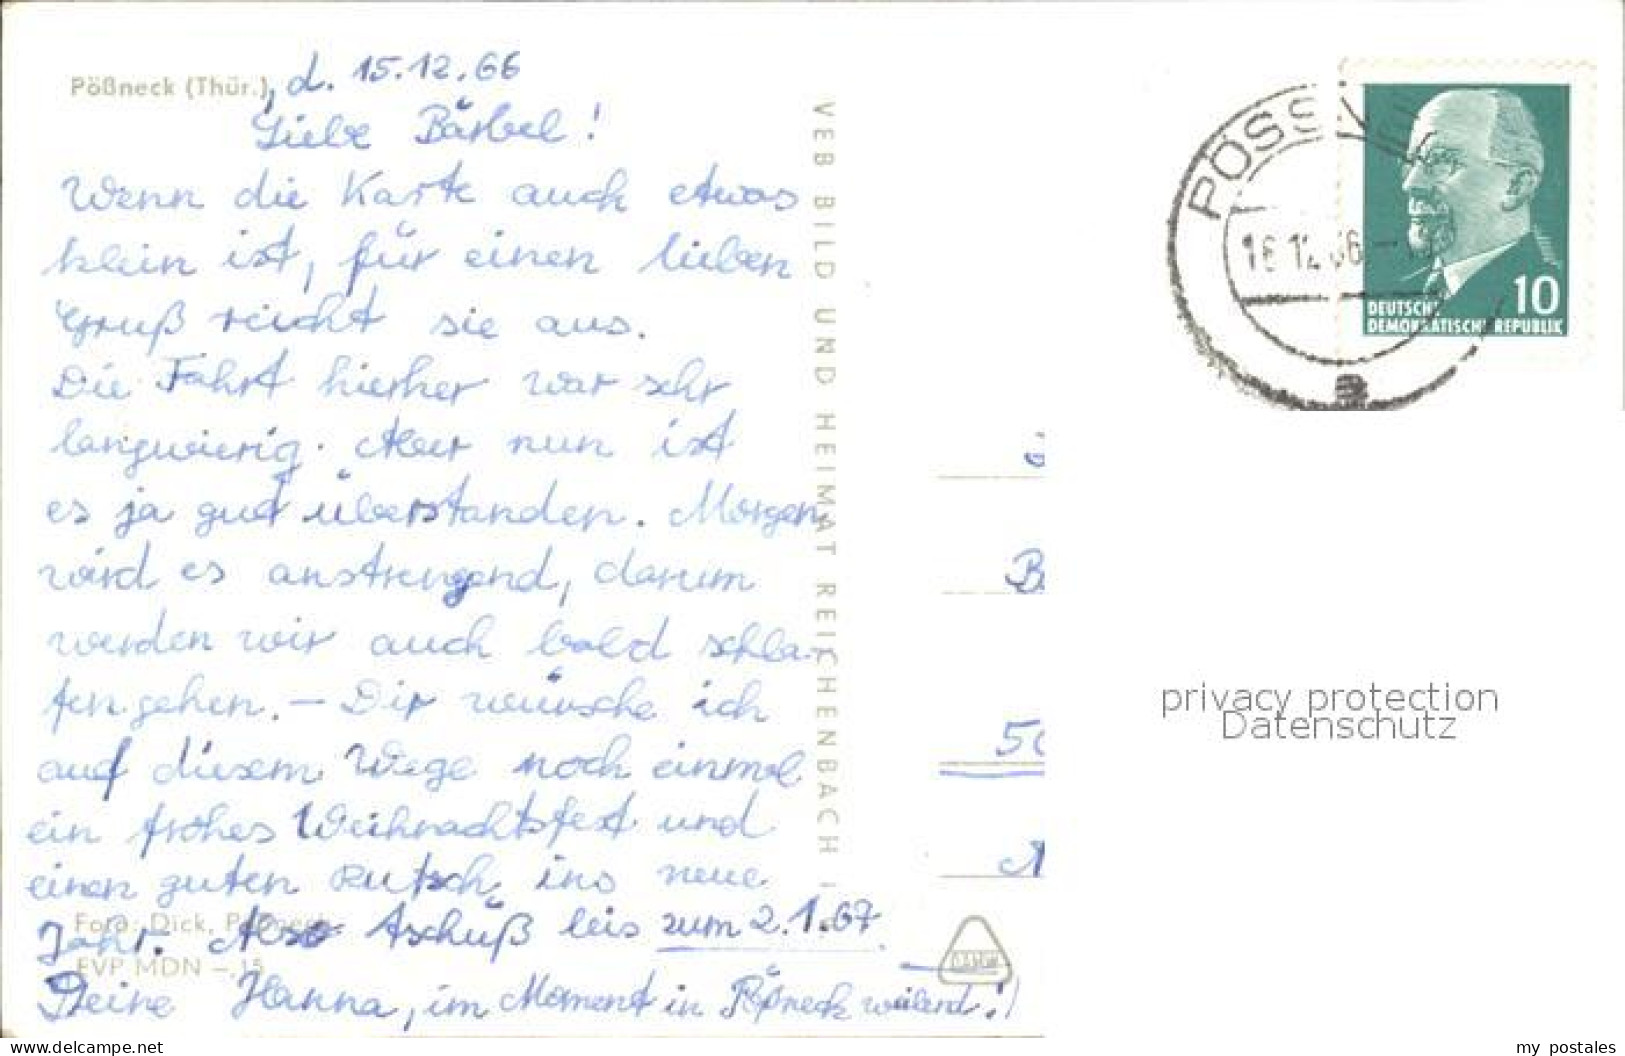 Pößneck (Thür.), d. 15.12.66
Liebe Bärbel!
Wenn die Karte auch etwas
klein ist, für einen lieben
Gruß reicht sie aus.
Die Fahrt hierher war sehr
langwierig. Aber nun ist
es ja gut überstanden. Morgen
wird es anstrengend, darum
werden wir auch bald schla-
fen gehen. – Dir wünsche ich
auf diesem Wege noch einmal
ein frohes Weihnachtsfest und
einen guten Rutsch ins neue
Jahr. Also tschüß bis zum 2.1.67.
Deine Hanna, im Moment in Pößneck weilend!)
Foto: Dick, Pößneck
EVP MDN –,15
VEB BILD UND HEIMAT REICHENBACH I
PÖSSN
16.12.66
10
DEUTSCHE
DEMOKRATISCHE REPUBLIK
B
50
privacy protection
Datenschutz
www.delcampe.net
my_postales